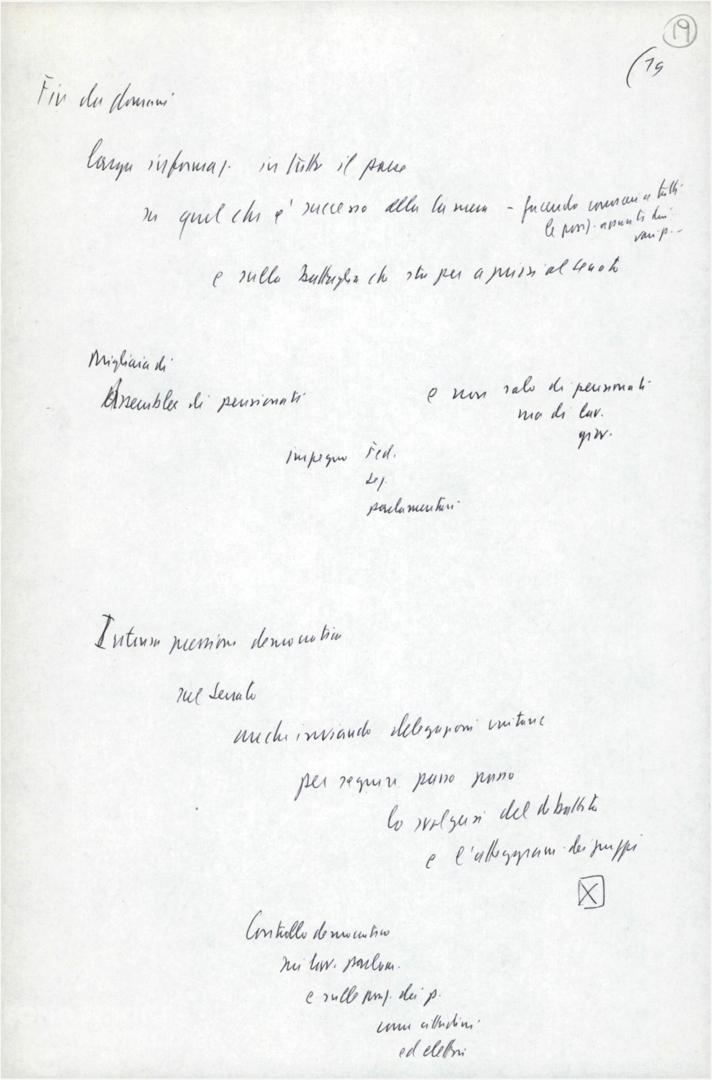 19
(19
Fin da domani
larga informaz. in tutto il paese
su quel che è successo alla Camera - facendo conoscere a tutti
le posiz. assunte dai
vari p.
e sulla battaglia che sta per aprirsi al Senato
Migliaia di
Assemblee di pensionati
e non solo di pensionati
ma di lav.
giov.
impegno Fed.
Sez.
parlamentari
Intensa pressione democratica
sul Senato
anche inviando delegazioni unitarie
per seguire passo passo
lo svolgersi del dibattito
e l'atteggiam. dei gruppi
X
Controllo democratico
sui lav. parlam.
e sulle posiz. dei p.
come cittadini
ed elettori